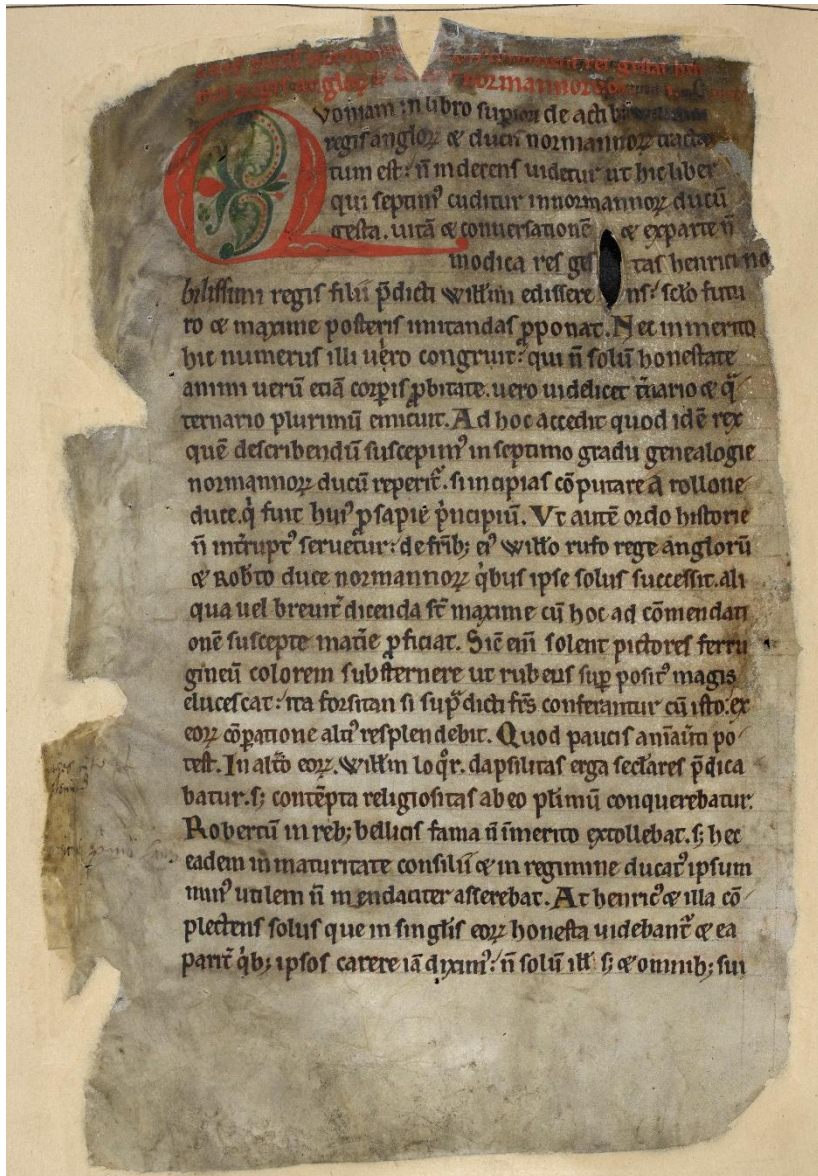 regis angloꝝ ⁊ ducis normannoꝝ
Quoniam in libro supiori de actib
regis angloꝝ ⁊ ducū normannoꝝ tracta
tum est: n̄ indecens uidetur ut hic liber
qui septimꝰ cuditur in normannoꝝ ducū
gesta. uitā ⁊ conuersationē ⁊ ex parte n̄
modica res ges tas henrici no
bilissimi regis filii p̄dicti Willīmi edissere ns: sc̄lo futu
ro ⁊ maxime posteris imitandas ꝓponat. Nec inmerito
hic numerus illi uero congruit: qui n̄ solū honestate
animi uerū etiā corꝑis ꝓbitate. uero uidelicet t̄nario ⁊ q̄
ternario plurimū emicuit. Ad hoc accedit quod idē rex
quē describendū suscepimꝰ in septimo gradu genealogie
normannoꝝ ducū reperit᷑. si incipias cōputare a rollone
duce. q̇ fuit huiꝰ ꝓsapie ṗncipiū. Vt autē ordo historie
n̄ int̄ruptꝰ seruetur: de frīb; eiꝰ Willo rufo rege anglorū
⁊ Rob̄to duce normannoꝝ q̇bus ipse solus successit. ali
qua uel breuit᷑ dicenda st̄ maxime cū hoc ad cōmendati
onē suscepte mat̄ie ꝓficiat. Sic̄ eni̅ solent pictores ferru
gineū colorem substernere ut rubeus suꝑ positꝰ magis
elucescat: ita forsitan si sup̄dicti fr̄s conferantur cū isto. ex
eoꝝ cōparatione altiꝰ resplendebit. Quod paucis aniāuti po
test. In alt̄o eoꝝ. Willm loq̊r. dapsilitas erga sec̄lares p̄dica
batur. s; contēpta religiositas ab eo pl̄imū conquerebatur.
Robertū in reb; bellicis fama n̄ īmerito extollebat. s; hec
eadem inmaturitate consilii ⁊ in regimine ducatꝰ ipsum
minꝰ utilem n̄ mendaciter asserebat. At henricꝰ ⁊ illa cō
plectens solus que in singl̄is eoꝝ honesta uidebant᷑ ⁊ ea
parit᷑ q̇b; ipsos carere iā diximꝰ: n̄ solū ill̄ s; ⁊ omnib; sui